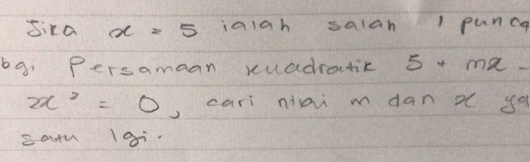 Jika x = 5 ialah salah 1 punca
bg. Persamaan kuadratik 5 + mx -
2x² = 0, cari nilai m dan x yg
satu lgi.